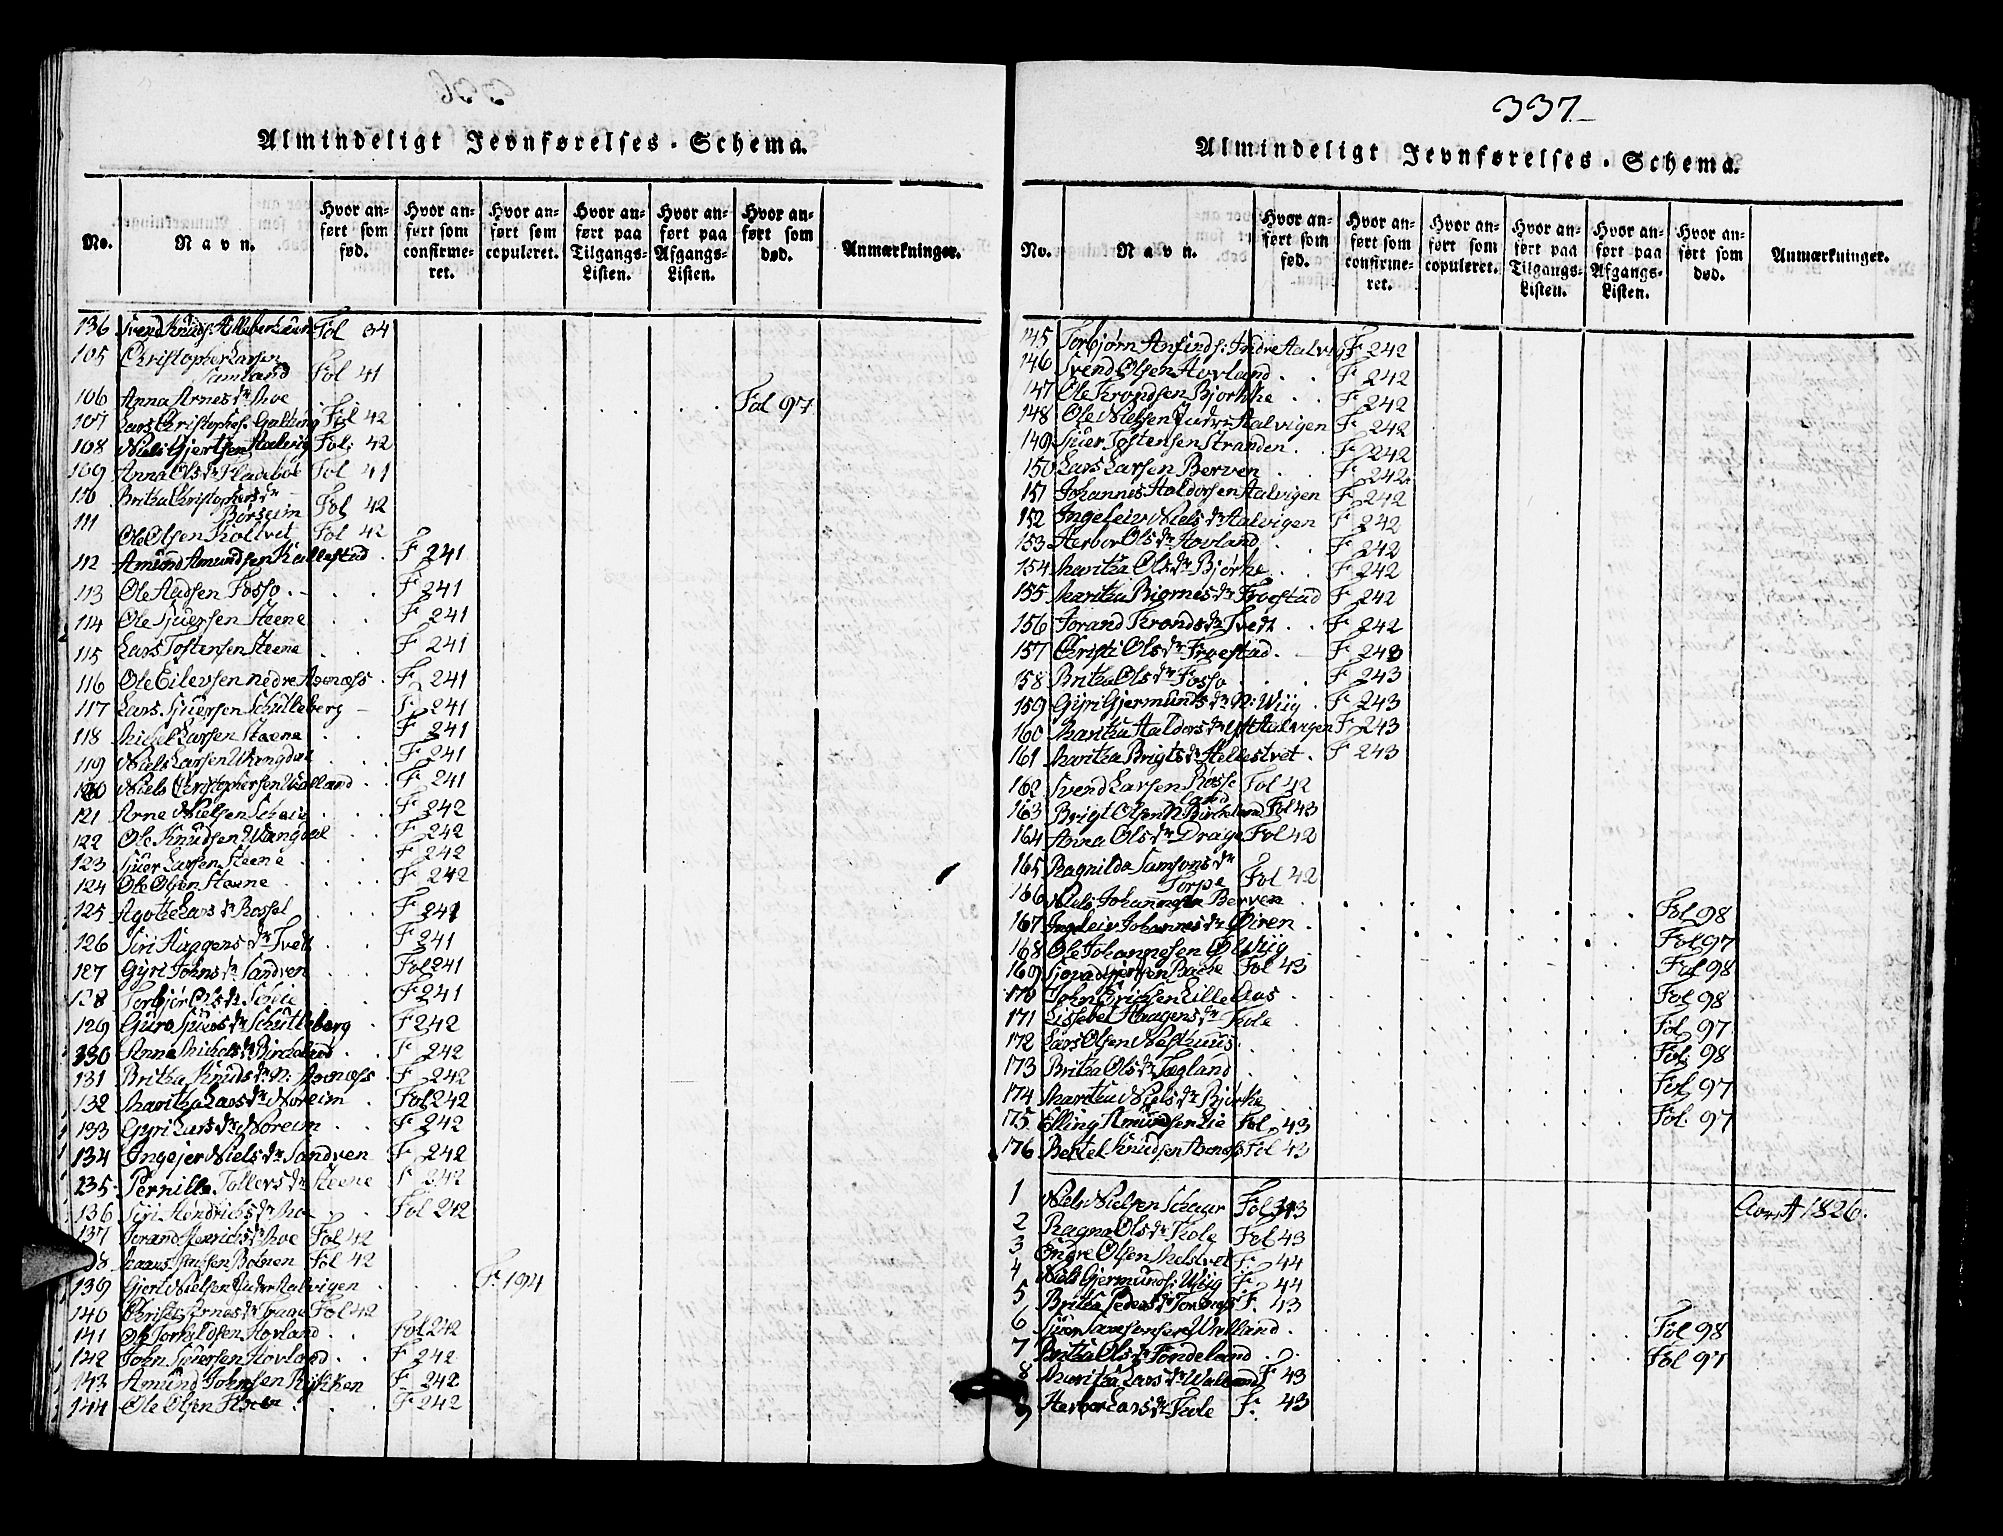 337
Almindeligt Jevnførelses-Schema.
No.
Navn.
Hvor anført som fød.
Hvor anført som confirmeret.
Hvor anført som copuleret.
Hvor anført paa Tilgangs-Listen.
Hvor anført paa Afgangs-Listen.
Hvor anført som død.
Anmærkninger.
136 Svend Knuds: Fol 34
105 Christopher Larsen
Samland Fol 41
106 Anna Arnes dr Moe Fol 97
107 Lars Christophes: Galtung Fol 42
108 Niels Gjertsen Aalvig Fol: 42
109 Anna Ols dr Fladebøe Fol 41
110 Britha Christophers dr
Børseim Fol 42
111 Ole Olsen Koltvet Fol 42
112 Amund Amundsen Kallestad F 241
113 Ole Aadsen Fosso F 241
114 Ole Sjursen Steene F 241
115 Lars Tostensen Steene F 241
116 Ole Eilevsen nedre Axnæss F 241
117 Lars Sjursen Schutleberg F 241
118 Michel Larsen Steene F 241
119 Niels Larsen Wangdal F 241
120 Niels Christophersen Walland F 241
121 Arne Nielsen Scheie F 242
122 Ole Knudsen Wangdal F 242
123 Sjur Larsen Steene F 242
124 Ole Olsen Steene F 242
125 Agotte Lars dr Rossel F 241
126 Siri Haagens dr Tvedt F 241
127 Gyri Johns dr Sandven Fol 241
128 Torbjør Ols dr F 241
129 Guro Sjurs dr Schutleberg F 242
130 Anna Michels dr Birkeland F 242
131 Britha Knuds dr N: Axnæss F 242
132 Maritha Lars dr Noreim Fol 242
133 Gyri Lars dr Noreim F 242
134 Ingejer Niels dr Sandven F 242
135 Pernille Tollevs dr Steene F 242
136 Siri Hendrichs dr Moe Fol 242
137 Jorand Henrichs dr Moe Fol 42
138 Botnen Fol 42
139 Gjert Nielsen Indr Aalvigen F. 194
140 Christi Arnes dr Trage Fol 42
141 Ole Torkildsen Hovland Fol 242
142 John Sjursen Hovland F 242
143 Amund Johnsen Rykken F 242
144 Ole Olsen F 242
Almindeligt Jevnførelses-Schema.
No.
Navn.
Hvor anført som fød.
Hvor anført som confirmeret.
Hvor anført som copuleret.
Hvor anført paa Tilgangs-Listen.
Hvor anført paa Afgangs-Listen.
Hvor anført som død.
Anmærkninger.
145 Torbjørn Anfinds: Indre Aalvig F 242
146 Svend Olsen Hovland F 242
147 Ole Trondsen Bjørkke F 242
148 Ole Nielsen Indre Aalvigen F 242
149 Sjuer Tostensen Stranden F 242
150 Lars Larsen Berven F 242
151 Johannes Haldorsen Aalvigen F 242
152 Ingeleiv Niels dr Aalvigen F 242
153 Herbor Ols dr Hovland F 242
154 Maritha Ols dr Bjørke F 242
155 Maritha Biørnes dr Froestad F 242
156 Jorand Tronds dr Tvedt F 242
157 Christi Ols dr Froestad F 243
158 Britha Ols dr Fosso F 243
159 Gyri Gjermunds dr N: Wiig F 243
160 Maritha Haldors dr Aalvigen F 243
161 Maritha Brigts dr Hellestvet F 243
162 Svend Larsen Rosseland Fol 42
163 Brigt Olsen N Birkeland Fol 43
164 Anna Ols dr Drage Fol 42
165 Ragnilda Samsons dr
Torpe Fol 42
166 Niels Johannesen Berven Fol 98
167 Ingeleiv Johannes dr Øiren Fol 97
168 Ole Johannesen Ø Wiig Fol 98
169 Bache Fol 43
170 John Erichsen Lille Aas Fol 98
171 Lissebet Haagens dr Fiole Fol 97
172 Lars Olsen Nesthuus Fol 98
173 Britha Ols dr Fol 97
174 Maritha Niels dr Bjørke Fol 97
175 Elling Amundsen Lie Fol 43
176 Bottel Knudsen Axnæss Fol 43
Aaret 1826.
1 Niels Nielsen Schaar Fol 43
2 Ragna Ols dr Fiole Fol 43
3 Endre Olsen F 44
4 Niels Gjermunds: Wiig F 44
5 Britha Peders dr F. 43
6 Sjur Walland Fol 98
7 Britha Ols dr Fol 97
8 Maritha Lars dr Walland F 43
9 Herbor Lars dr Fiole F. 43